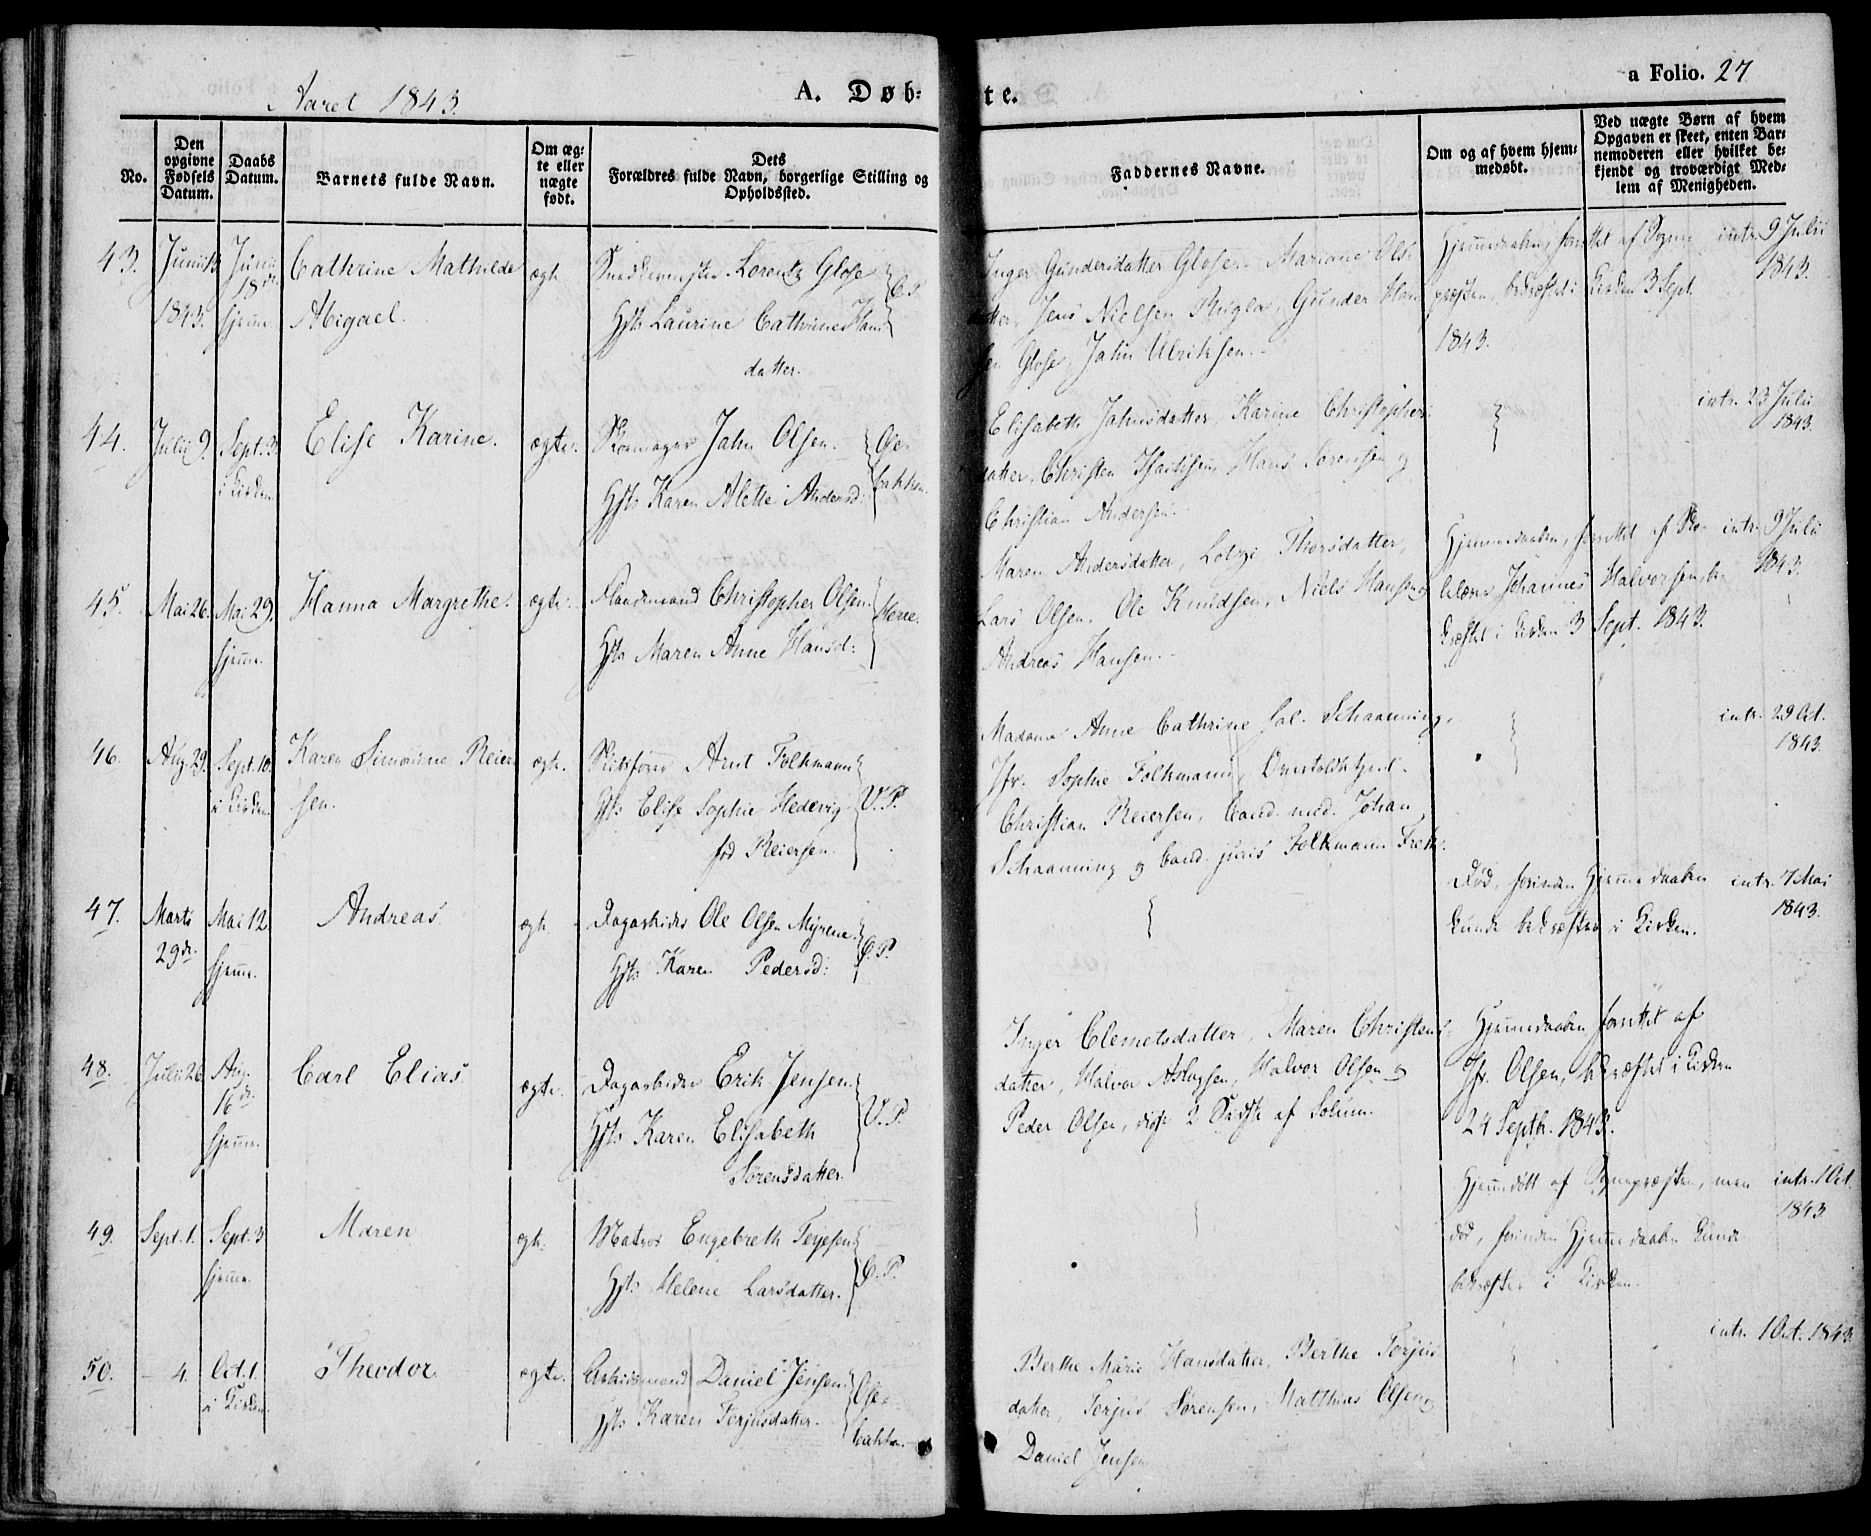 Aaret 1843.
A. Døb-
te.
a Folio. 27
No.
Den
opgivne
Fødsels
Datum.
Daabs
Datum.
Barnets fulde Navn.
Om æg-
te eller
nægte
født.
Dets
Forældres fulde Navn, borgerlige Stilling og
Opholdssted.
Faddernes Navne.
Om og af hvem hjem-
medøbt.
Ved nægte Børn af hvem
Opgaven er skeet, enten Bar-
nemoderen eller hvilket be-
kjendt og troværdigt Med-
lem af Menigheden.
43.
Junii 13
1843.
Junii
18de
hjem.
Cathrine Mathilde
Abigael.
ægte
Lorentz Glose
Hst. Laurine Cathrine Hans
datter.
Inger Gundersdatter Glosen. Mariane Ols-
datter, Jens Nielsen Rugla, Gunder Han
sen Glose, Jahn Ulriksen.
Hjemmedaaben, forrettet af Sogne
præsten, bekræftet i Kirken 3 Sept.
1843.
intr. 9 Julii
1843.
44.
Julii 9.
Sept. 3
i Kirken
Elise Karine.
ægte.
Skomager Jahn Olsen.
Hst. Karen Alethe Andersd:
bakken.
Elisabeth Jahnsdatter, Karine Christophers-
datter, Christen Isachsen, Hans Sørensen og
Christian Andersen.
intr. 23 Julii
1843.
45.
Mai 26.
Mai 29.
hjem.
Hanna Margrethe.
ægte.
Christopher Olsen
Hst. Maren Anne Hansd:
Herre.
Maren Andersdatter, Thorsdatter,
Lars Olsen, Ole Knudsen, Niels Hansen og
Andreas Hansen.
Hjemmedaaben, forrettet af Sko-
lelærer Johannes Halvorsen, be-
kræftet i Kirken 3 Sept. 1843.
intr. 9 Julii
1843.
46.
Aug. 29.
Sept. 10.
i Kirken
Karen Simonine Reier
sen.
ægte.
Skibsfører Arnt Folkmann
Hst. Elise Sophie Hedevig
fød Reiersen.
V. P.
Madame Anne Cathrine Sal. Schaanning,
Jfr. Sophie Folkmann,
Christian Reiersen, Cand. med. Johan
Schaanning og Cand. juris Folkmann
intr. 29 Oct.
1843.
47.
Marts
29de.
Mai 12
hjem.
Andreas.
ægte.
Dagarbeider Ole Olsen Myrene.
Hst. Karen Pedersd:
Død, forinden Hjemmedaaben
kunde bekræftes i Kirken.
intr. 7 Mai
1843.
48.
Julii 26
Aug.
16de
hjem.
Carl Elias
ægte.
Dagarbeider Erik Jensen
Hst. Karen Elisabeth
Sørensdatter.
V. P.
Inger Clemetsdatter, Maren Christens-
datter, Halvor Aslagsen, Halvor Olsen og
Peder Olsen, disse 2 Sidste af Solum.
Hjemmedaaben forrettet af
Jfr. Olsen, bekræftet i Kirken
24 Septbr. 1843.
49.
Sept. 1.
Sept. 3
hjem.
Maren
ægte.
Matros Engebreth
Hst. Helene Larsdatter.
Hjemmedøbt af Sognepræsten, men
død, forinden Hjemmedaaben kunde
bekræftes i Kirken.
intr. 1 Oct.
1843.
50.
- 4.
Oct. 1.
i Kirken.
Theodor
ægte.
Arbeidsmand Daniel Jensen
Hst. Karen Terjusdatter.
bakken.
Berthe Marie Hansdatter, Berthe Terjus
datter, Terjus Sørensen, Matthias Olsen og
Daniel Jensen
intr. 1 Oct. 1843.